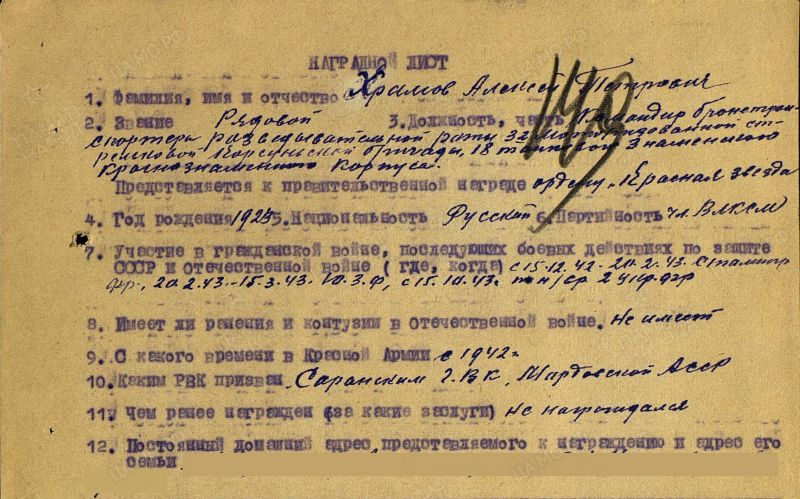 НАГРАДНОЙ ЛИСТ
1. Фамилия, имя и отчество Храмов Алексей Петрович
2. Звание Рядовой 3. Должность, часть Командир бронетран-
спортера разведывательной роты 32 мотор��зованной ст-
релковой Корсуньской бригады, 18 танкового Знаменского
Краснознаменного Корпуса.
Представляется к правительственной награде ордену "Красная звезда
4. Год рождения 1923 5. Национальность Русский 6. Партийность чл. ВЛКСМ
7. Участие в гражданской войне, последующих боевых действиях по защите
СССР и отечественной войне (где, когда) с 15.12.42 - 20.2.43. Сталингр
фр., 20.2.43.-15.3.43. Ю.З.Ф, с 15.10.43г. по н/вр 2 Укр. фр
8. Имеет ли ранения и контузии в отечественной войне. Не имеет
9. С какого времени в Красной Армии с 1942 г
10. Каким РВК призван Саранским Г.В.К., Мордовской АССР
11. Чем ранее награжден (за какие заслуги) Не награждался
12. Постоянный домашний адрес представляемого к награждению и адрес его
семьи